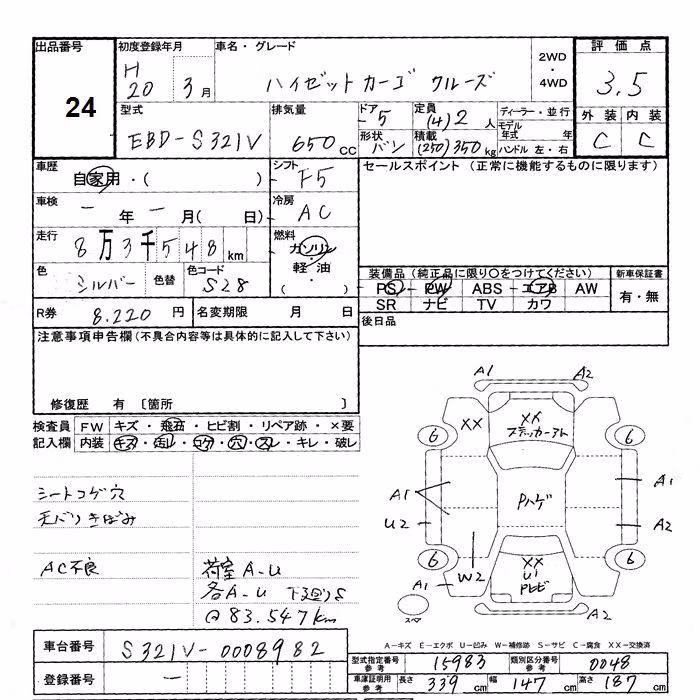 出品番号 初度登録年月 車名・グレード 2WD・4WD 評価点
24 H20 3月 ハイゼットカーゴ クルーズ 3.5
型式 排気量 ドア 定員 ディーラー・並行 外装 内装
EBD-S321V 650CC 5 (4)2人 モデル年式 年 C C
形状 バン 積載 (250)350kg ハンドル 左・右
車歴 自家用・( ) シフト F5 セールスポイント (正常に機能するものに限ります)
車検 ー年ー月( 日) 冷房 AC
走行 8万3千548km 燃料 ガソリン・軽油・( )
色 シルバー 色替 色コード S28
装備品 (純正品に限り〇をつけてください) 新車保証書
PS PW ABS エアB AW 有・無
SR ナビ TV カワ
R券 8.220円 名変期限 月 日 後日品
注意事項申告欄(不具合内容等は具体的に記入して下さい)
修復歴 有 〔箇所 〕
検査員 FW キズ・飛石・ヒビ割・リペア跡・×要
記入欄 内装 キズ・汚レ・コゲ・穴・スレ・キレ・破レ
シートコゲ穴
天バリきばみ
AC不良 荷室A-U
各A-U 下廻りS
@83.547km
A1 A2
XX XX
ステッカーアト
6 6
A1 Pハゲ A1
U2 A2
W2 XX
U1
PトビA1
6 6
スペア A2
A-キズ E-エクボ U-凹み W-補修跡 S-サビ C-腐食 XX-交換済
車台番号 S321V-0008982
登録番号 ー
型式指定番号 参考 15983 類別区分番号 参考 0048
車庫証明用 参考 長さ 339cm 幅 147cm 高さ 187cm